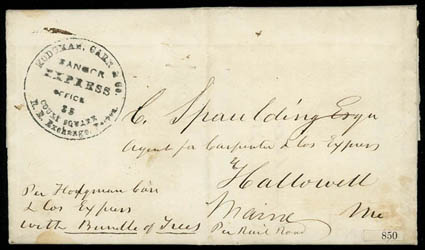 HODGMAN, CARR & Co.
BANGOR
EXPRESS
OFFICE
25
COURT SQUARE
R. R. Exchange, Boston.
C. Spaulding Esqr
Agent for Carpenter & Cos Express
Hallowell
Maine Me
Per Rail Road
Per Hodgman Carr
& Cos Express
with Bundle of Trees
850